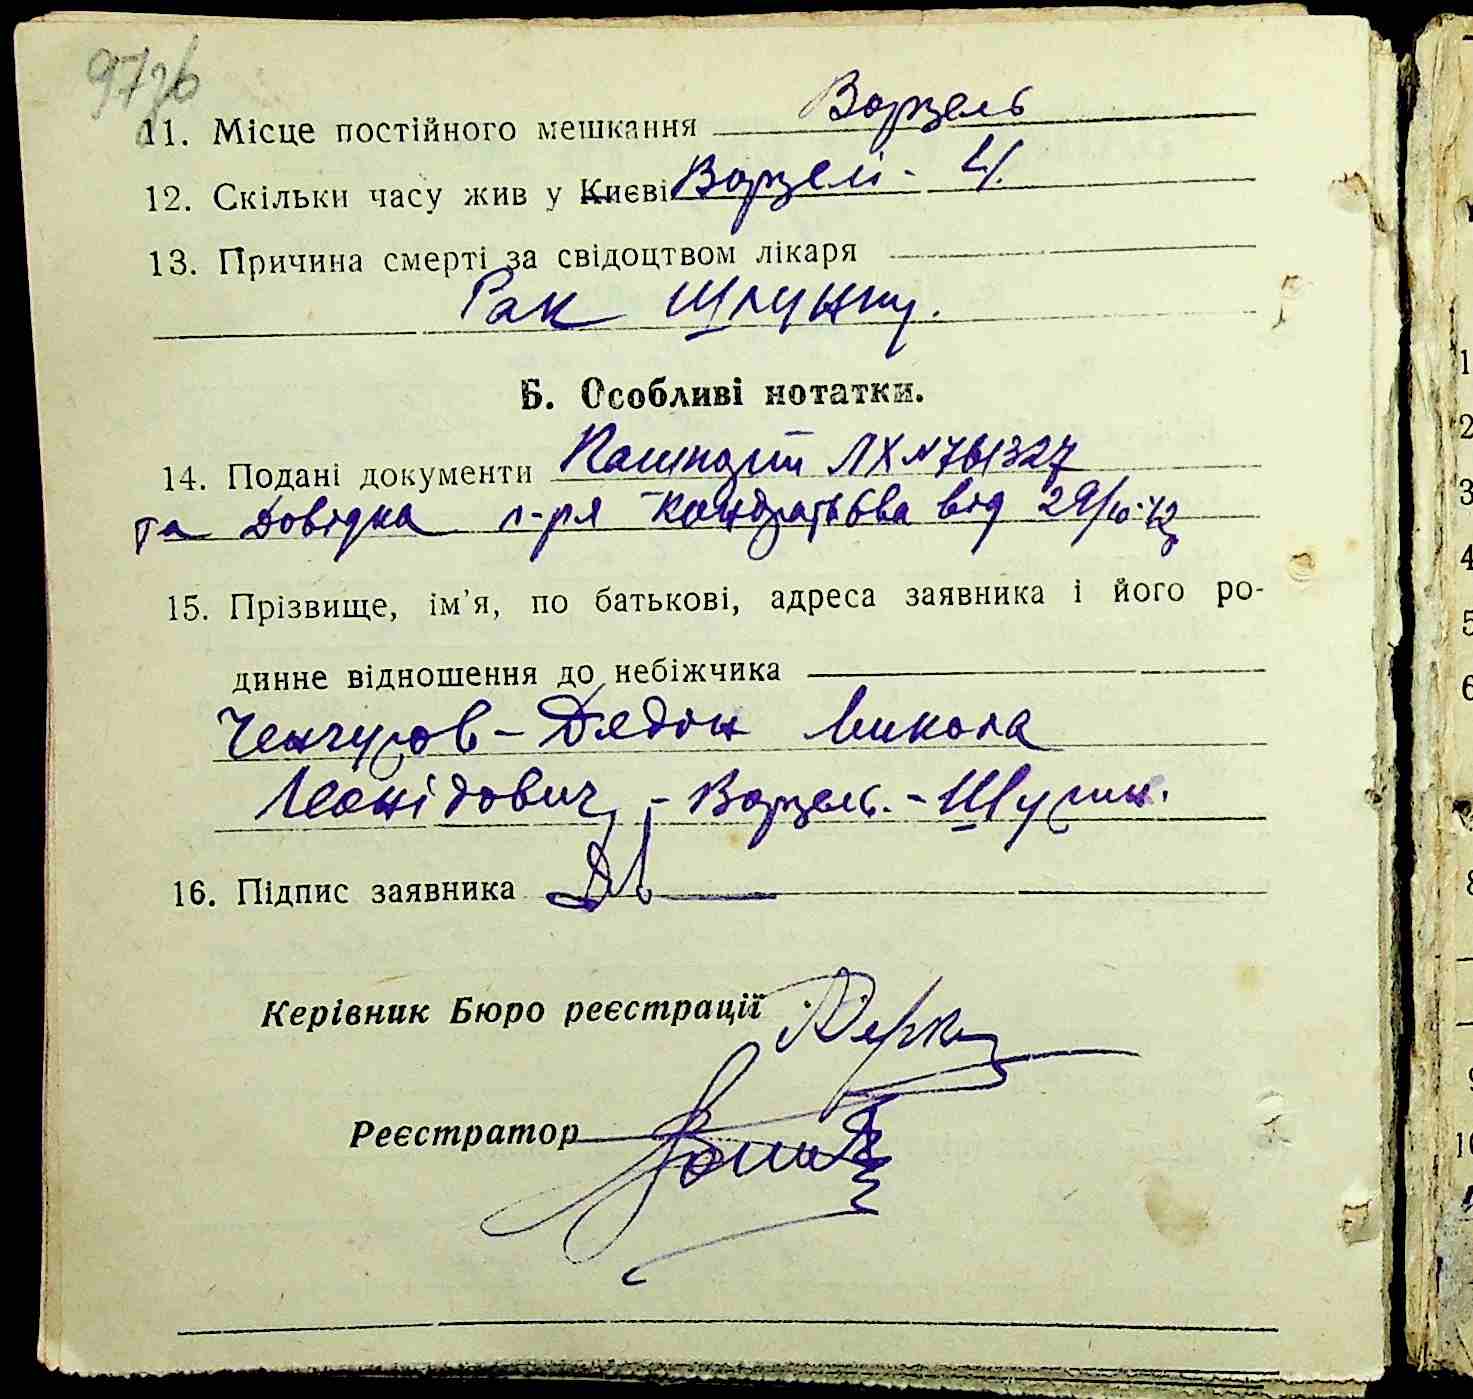 97зв
11. Місце постійного мешкання Ворзель
12. Скільки часу жив у Києві Ворзелі - 4.
13. Причина смерті за свідоцтвом лікаря
Рак шлунку.
Б. Особливі нотатки.
14. Подані документи Пашпорт ЛХ №761327
та довідка л-ря Кондратьєва від
15. Прізвище, ім’я, по батькові, адреса заявника і його ро-
динне відношення до небіжчика
Ченчуров-Дядон Микола
Леонідович, - Ворзель. -
16. Підпис заявника
Керівник Бюро реєстрації
Реєстратор